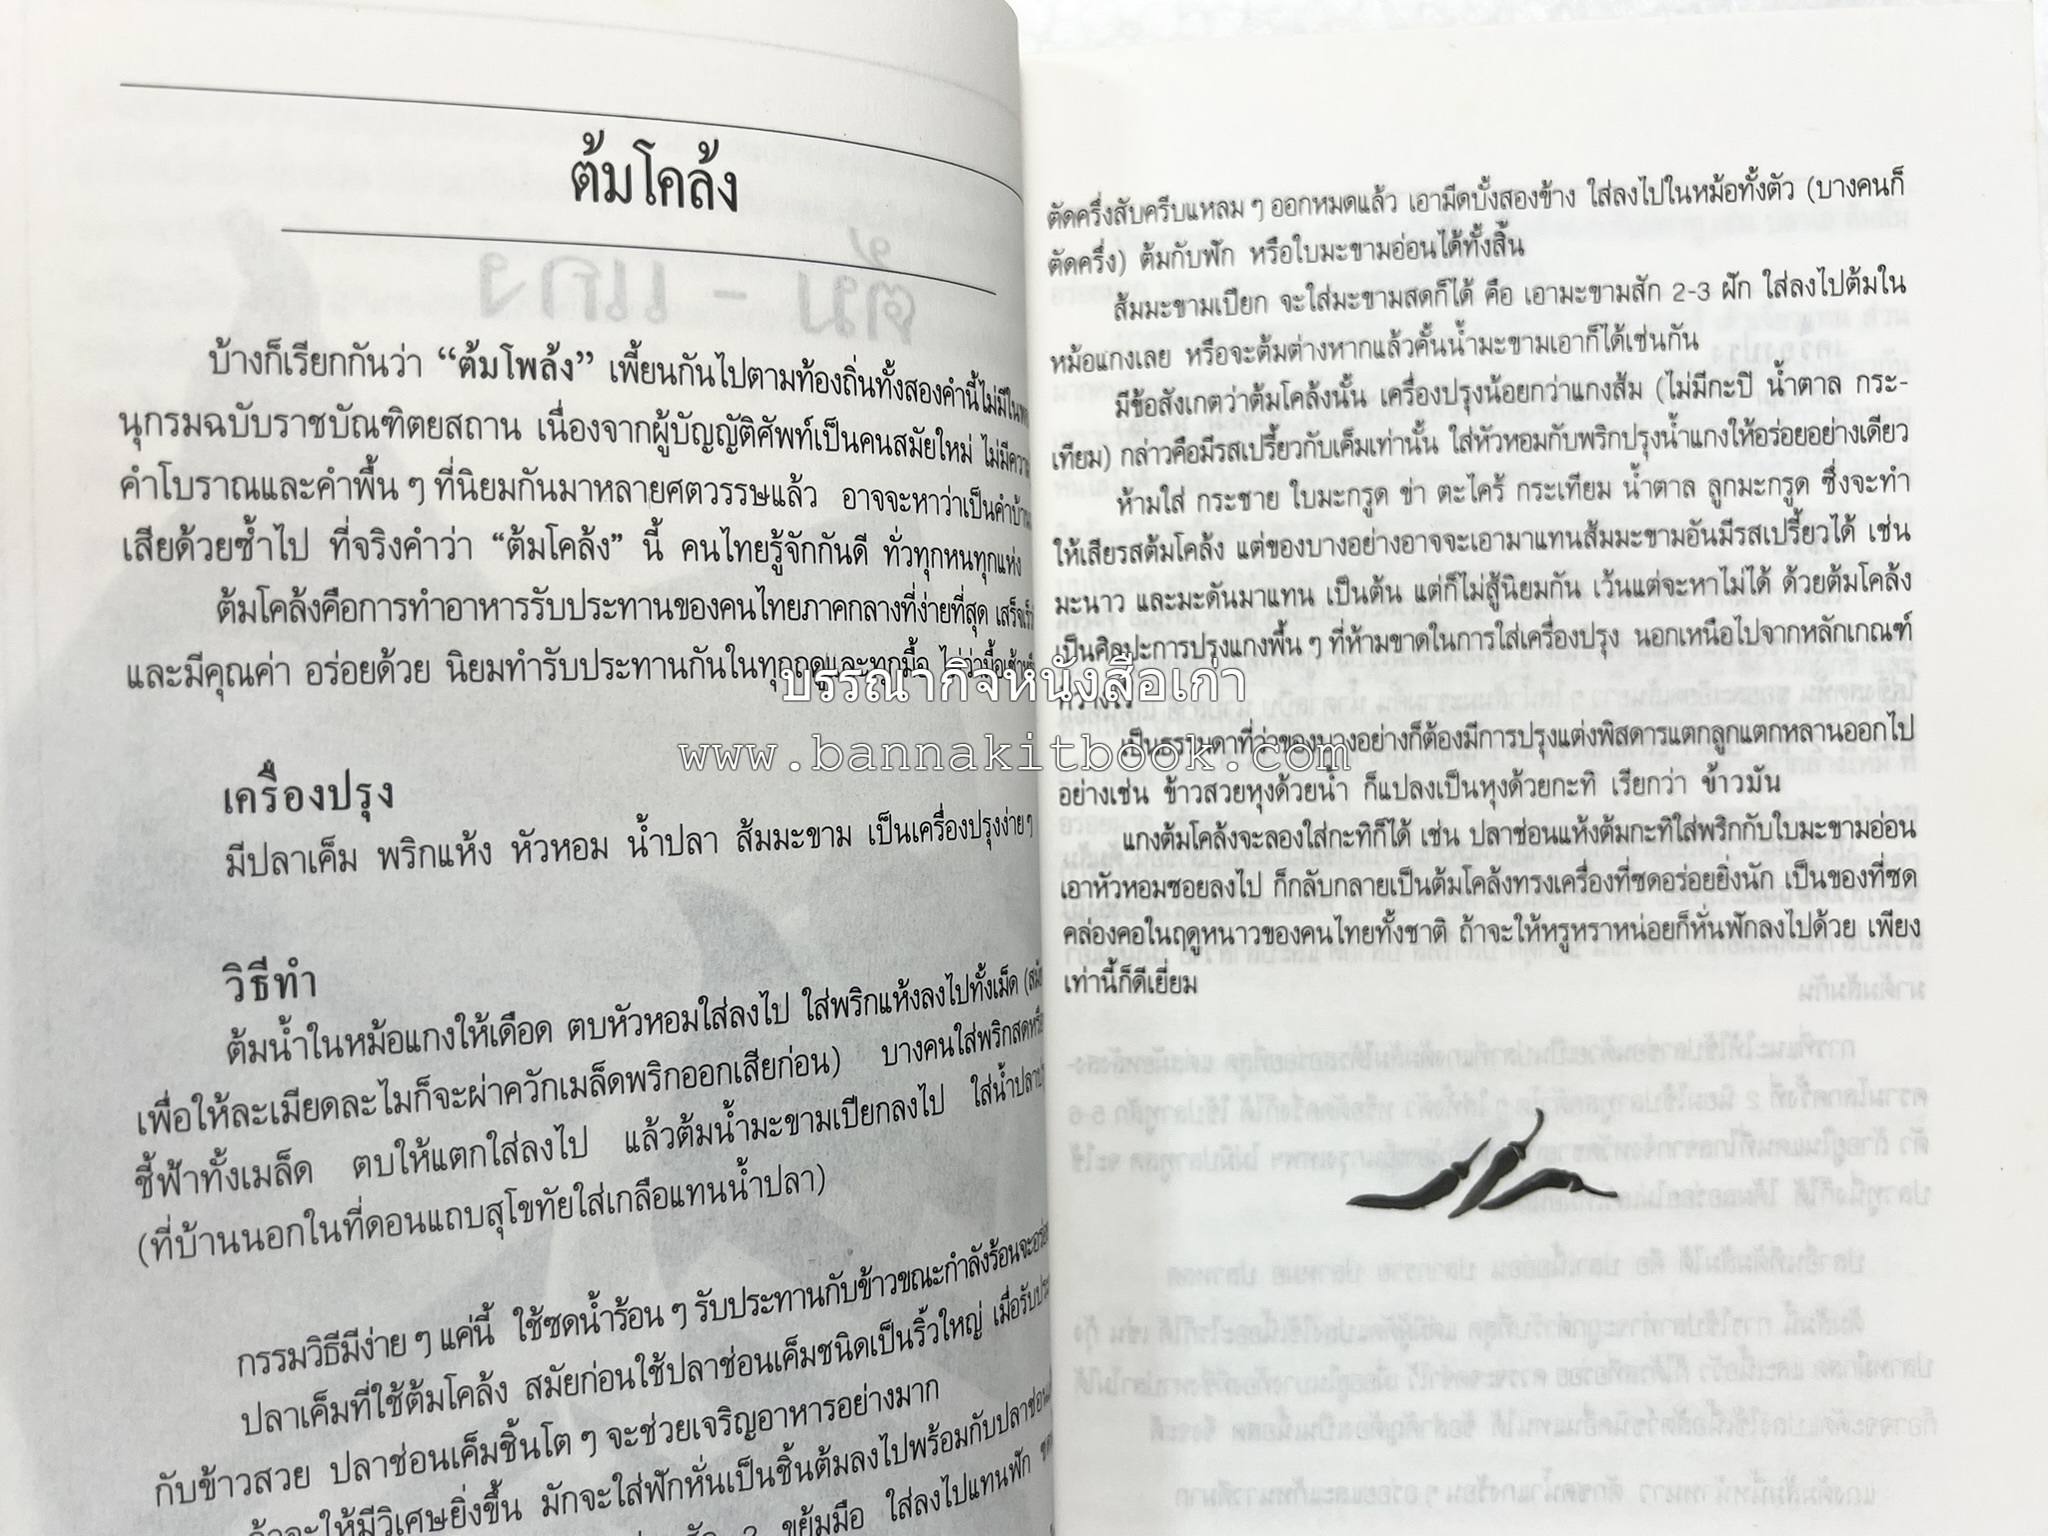 ต้มโคล้ง
บ้างก็เรียกกันว่า “ต้มโพล้ง” เพี้ยนกันไปตามท้องถิ่นทั้งสองคำนี้ไม่มีใน
นุกรมฉบับราชบัณฑิตยสถาน เนื่องจากผู้บัญญัติศัพท์เป็นคนสมัยใหม่ ไม่มีความ
คำโบราณและคำพื้น ๆ ที่นิยมกันมาหลายศตวรรษแล้ว อาจจะหาว่าเป็นคำบ้าน
เสียด้วยซ้ำไป ที่จริงคำว่า “ต้มโคล้ง” นี้ คนไทยรู้จักกันดี ทั่วทุกหนทุกแห่ง
ต้มโคล้งคือการทำอาหารรับประทานของคนไทยภาคกลางที่ง่ายที่สุด เสร็จเร็ว
และมีคุณค่า อร่อยด้วย นิยมทำรับประทานกันในทุกฤดูและทุกมื้อ ไม่ว่ามื้อเช้า
เครื่องปรุง
มีปลาเค็ม พริกแห้ง หัวหอม น้ำปลา ส้มมะขาม เป็นเครื่องปรุงง่ายๆ
วิธีทำ
ต้มน้ำในหม้อแกงให้เดือด ตบหัวหอมใส่ลงไป ใส่พริกแห้งลงไปทั้งเม็ด
เพื่อให้ละเมียดละไมก็จะผ่าควักเมล็ดพริกออกเสียก่อน) บางคนใส่พริกสดหรือ
ชี้ฟ้าทั้งเมล็ด ตบให้แตกใส่ลงไป แล้วต้มน้ำมะขามเปียกลงไป ใส่น้ำปลา
(ที่บ้านนอกในที่ดอนแถบสุโขทัยใส่เกลือแทนน้ำปลา)
กรรมวิธีมีง่าย ๆ แค่นี้ ใช้ซดน้ำร้อน ๆ รับประทานกับข้าวขณะกำลังร้อนจะอร่อย
ปลาเค็มที่ใช้ต้มโคล้ง สมัยก่อนใช้ปลาช่อนเค็มชนิดเป็นริ้วใหญ่ เมื่อรับ
กับข้าวสวย ปลาช่อนเค็มชิ้นโต ๆ จะช่วยเจริญอาหารอย่างมาก
ให้มีวิเศษยิ่งขึ้น มักจะใส่ฟักหั่นเป็นชิ้นต้มลงไปพร้อมกับปลาช่อน
ขยุ้มมือ ใส่ลงไปแทนฟัก
ตัดครึ่งสับครีบแหลม ๆ ออกหมดแล้ว เอามีดบั้งสองข้าง ใส่ลงไปในหม้อทั้งตัว (บางคนก็
ตัดครึ่ง) ต้มกับฟัก หรือใบมะขามอ่อนได้ทั้งสิ้น
ส้มมะขามเปียก จะใส่มะขามสดก็ได้ คือ เอามะขามสัก 2-3 ฝัก ใส่ลงไปต้มใน
หม้อแกงเลย หรือจะต้มต่างหากแล้วคั้นน้ำมะขามเอาก็ได้เช่นกัน
มีข้อสังเกตว่าต้มโคล้งนั้น เครื่องปรุงน้อยกว่าแกงส้ม (ไม่มีกะปิ น้ำตาล กระ-
เทียม) กล่าวคือมีรสเปรี้ยวกับเค็มเท่านั้น ใส่หัวหอมกับพริกปรุงน้ำแกงให้อร่อยอย่างเดียว
ห้ามใส่ กระชาย ใบมะกรูด ข่า ตะไคร้ กระเทียม น้ำตาล ลูกมะกรูด ซึ่งจะทำ
ให้เสียรสต้มโคล้ง แต่ของบางอย่างอาจจะเอามาแทนส้มมะขามอันมีรสเปรี้ยวได้ เช่น
มะนาว และมะดันมาแทน เป็นต้น แต่ก็ไม่สู้นิยมกัน เว้นแต่จะหาไม่ได้ ด้วยต้มโคล้ง
เป็นศิลปะการปรุงแกงพื้น ๆ ที่ห้ามขาดในการใส่เครื่องปรุง นอกเหนือไปจากหลักเกณฑ์
ที่วางไว้
เป็นธรรมดาที่ว่าของบางอย่างก็ต้องมีการปรุงแต่งพิสดารแตกลูกแตกหลานออกไป
อย่างเช่น ข้าวสวยหุงด้วยน้ำ ก็แปลงเป็นหุงด้วยกะทิ เรียกว่า ข้าวมัน
แกงต้มโคล้งจะลองใส่กะทิก็ได้ เช่น ปลาช่อนแห้งต้มกะทิใส่พริกกับใบมะขามอ่อน
เอาหัวหอมซอยลงไป ก็กลับกลายเป็นต้มโคล้งทรงเครื่องที่ซดอร่อยยิ่งนัก เป็นของที่ซด
คล่องคอในฤดูหนาวของคนไทยทั้งชาติ ถ้าจะให้หรูหราหน่อยก็หั่นฟักลงไปด้วย เพียง
เท่านี้ก็ดีเยี่ยม
บรรณากิจหนังสือเก่า
www.bannakitbook.com